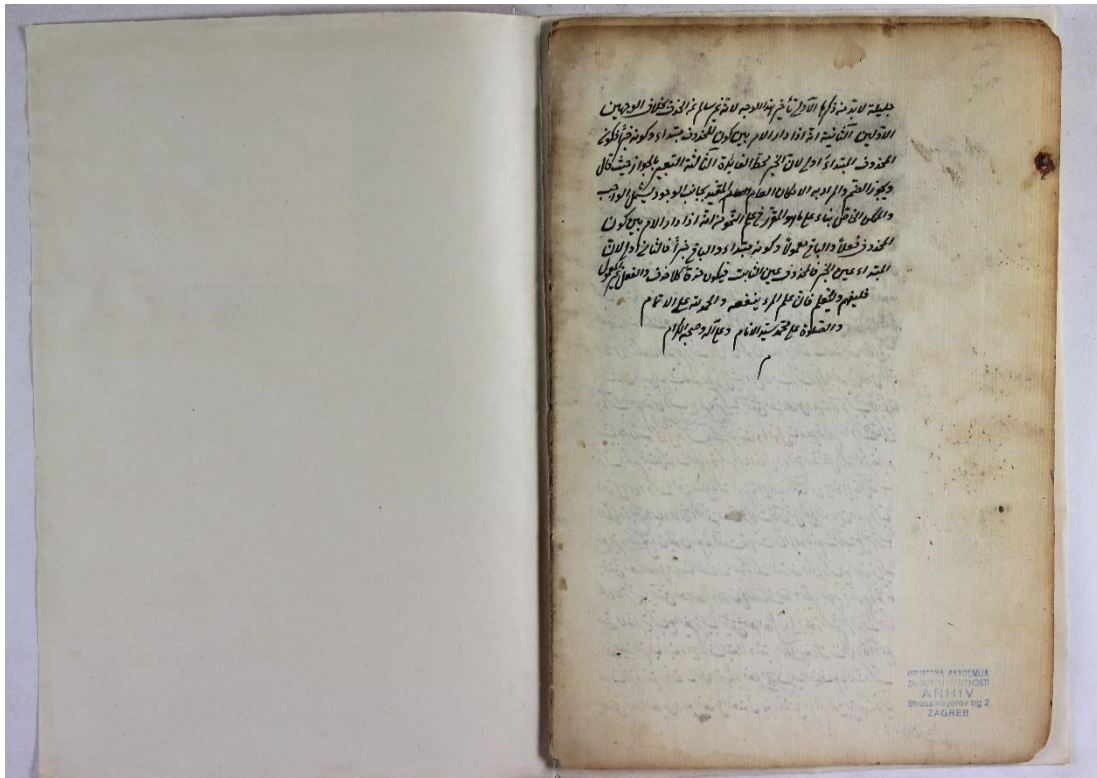 جليلة لا بد من ذكرها الاولى تأخير هذا الوجه لانه غير سالم عن الحذف بخلاف الوجهين
الاولين الثانية انه اذا دار الامر بين كون المحذوف مبتداء وكونه خبرا فكونه
المحذوف المبتداء اولى لان الخبر محط الفايدة الثالثة التعبير بالجواز حيث قال
ويجوز والمراد به الامكان العام المقيد بجانب الوجود ليشمل الواجب
والممكن الخاص بناء على ما هو المقرر في علم النحو من انه اذا دار الامر بين كون
المحذوف فعلا والباقي معمولا وكونه مبتداء والباقي خبرا فالثاني اولى لان
المبتداء عين الخبر فالمحذوف عين الثابت فيكون حذفا كلا حذف والفعل غير المعمول
فليفهم وليتعلم فان علم المرء ينفعه والحمد لله على الاتمام
والصلوة على محمد سيد الانام وعلى آله وصحبه الكرام
م
HRVATSKA AKADEMIJA
ZNANOSTI I UMJETNOSTI
ARHIV
Strossmayerov trg 2
ZAGREB